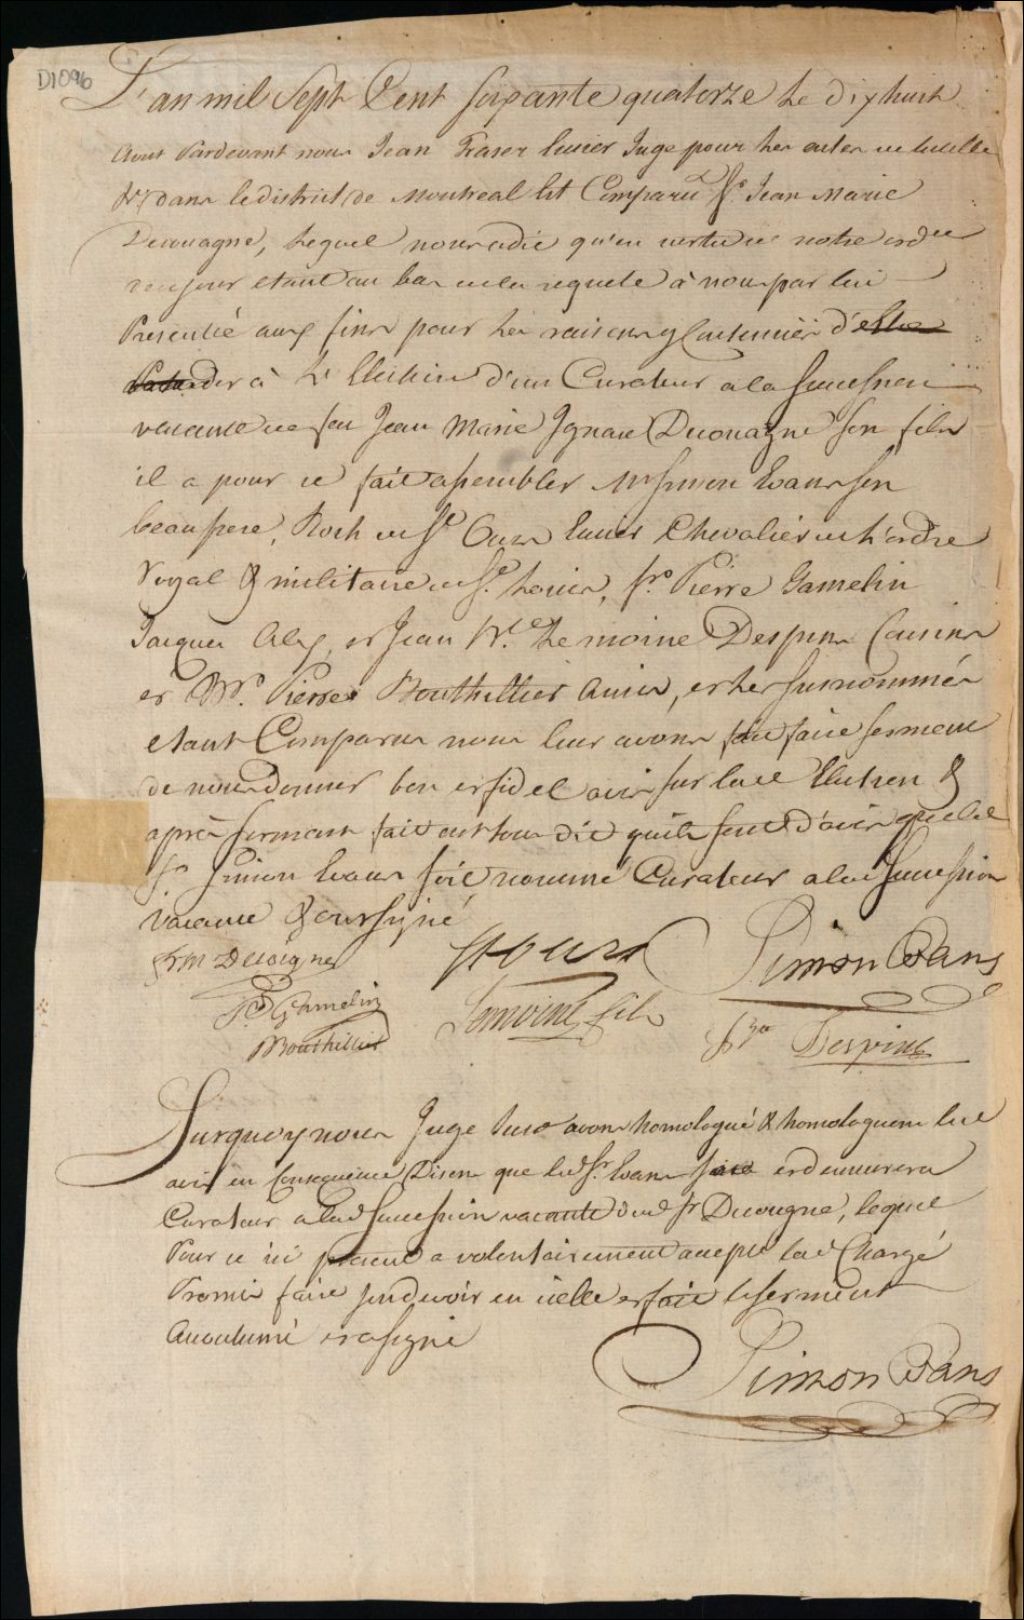 D1096
L'an mil Sept Cent soixante quatorze le dixhuit
Aout Pardevant nous Jean Fraser Ecuier Juge pour les actes de tutelle
&c dans le district de Montreal Est Comparu Sr. Jean Marie
Ducouagne, lequel nous a dit qu'en vertu de notre ordce
de ce jour etant au bas de la requete à nous par lui
Presentée aux fins pour les raisons y Contenües d'estre
der à L'Election d'un Curateur a la Succession
vacante de feu Jean Marie Ignace Ducouagne son fils
il a pour ce fait assembler Mr Simon Evans son
beaupere, Roch de St Ours Ecuier Chevalier de L'ordre
Royal & militaire de St. Louis, Srs Pierre Gamelin
Jacques Alex, et Jean Bte. Le moine Despins Cousins
et Mr. Pierre Bouthillier Amis, et les susnommés
etant Comparus nous leur avons fait faire serment
de nous donner bon et fidel avis sur lad. Election &
après serment fait ont tous dit quils sont d'avis que led
Sr. Simon Evans soit nommé Curateur a lad Succession
vacante & ont signé
JM Ducoigne
St ours
Simon Evans
P Gamelin
Lemoine fils
Bouthillier
Despins
Surquoy nous Juge Susd avons homologué & homologuons led
avis en Consequence Disons que led Sr. Evans sera et demeurera
Curateur a lad Succession vacante dud Sr Ducougne, lequel
Pour ce ici présent a volontairement accepté lad Charge
Promis faire son devoir en icelle et fait le serment
Accoutumé et a signé
Simon Evans